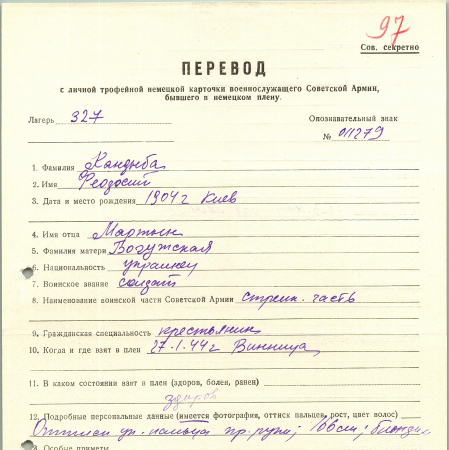 97
Сов. секретно
ПЕРЕВОД
с личной трофейной немецкой карточки военнослужащего Советской Армии,
бывшего в немецком плену.
Лагерь 327
Опознавательный знак
№ 011279
1. Фамилия Кандыба
2. Имя Феодосий
3. Дата и место рождения 1904 г Киев
4. Имя отца Мартын
5. Фамилия матери Богужская
6. Национальность украинец
7. Воинское звание солдат
8. Наименование воинской части Советской Армии стрелк. часть
9. Гражданская специальность крестьянин
10. Когда и где взят в плен 27.1.44 г Винница
11. В каком состоянии взят в плен (здоров, болен, ранен)
здоров
12. Подробные персональные данные (имеется фотография, оттиск пальцев, рост, цвет волос)
Оттиск ук. пальца пр. руки; 166 см; блондин
Особые приметы